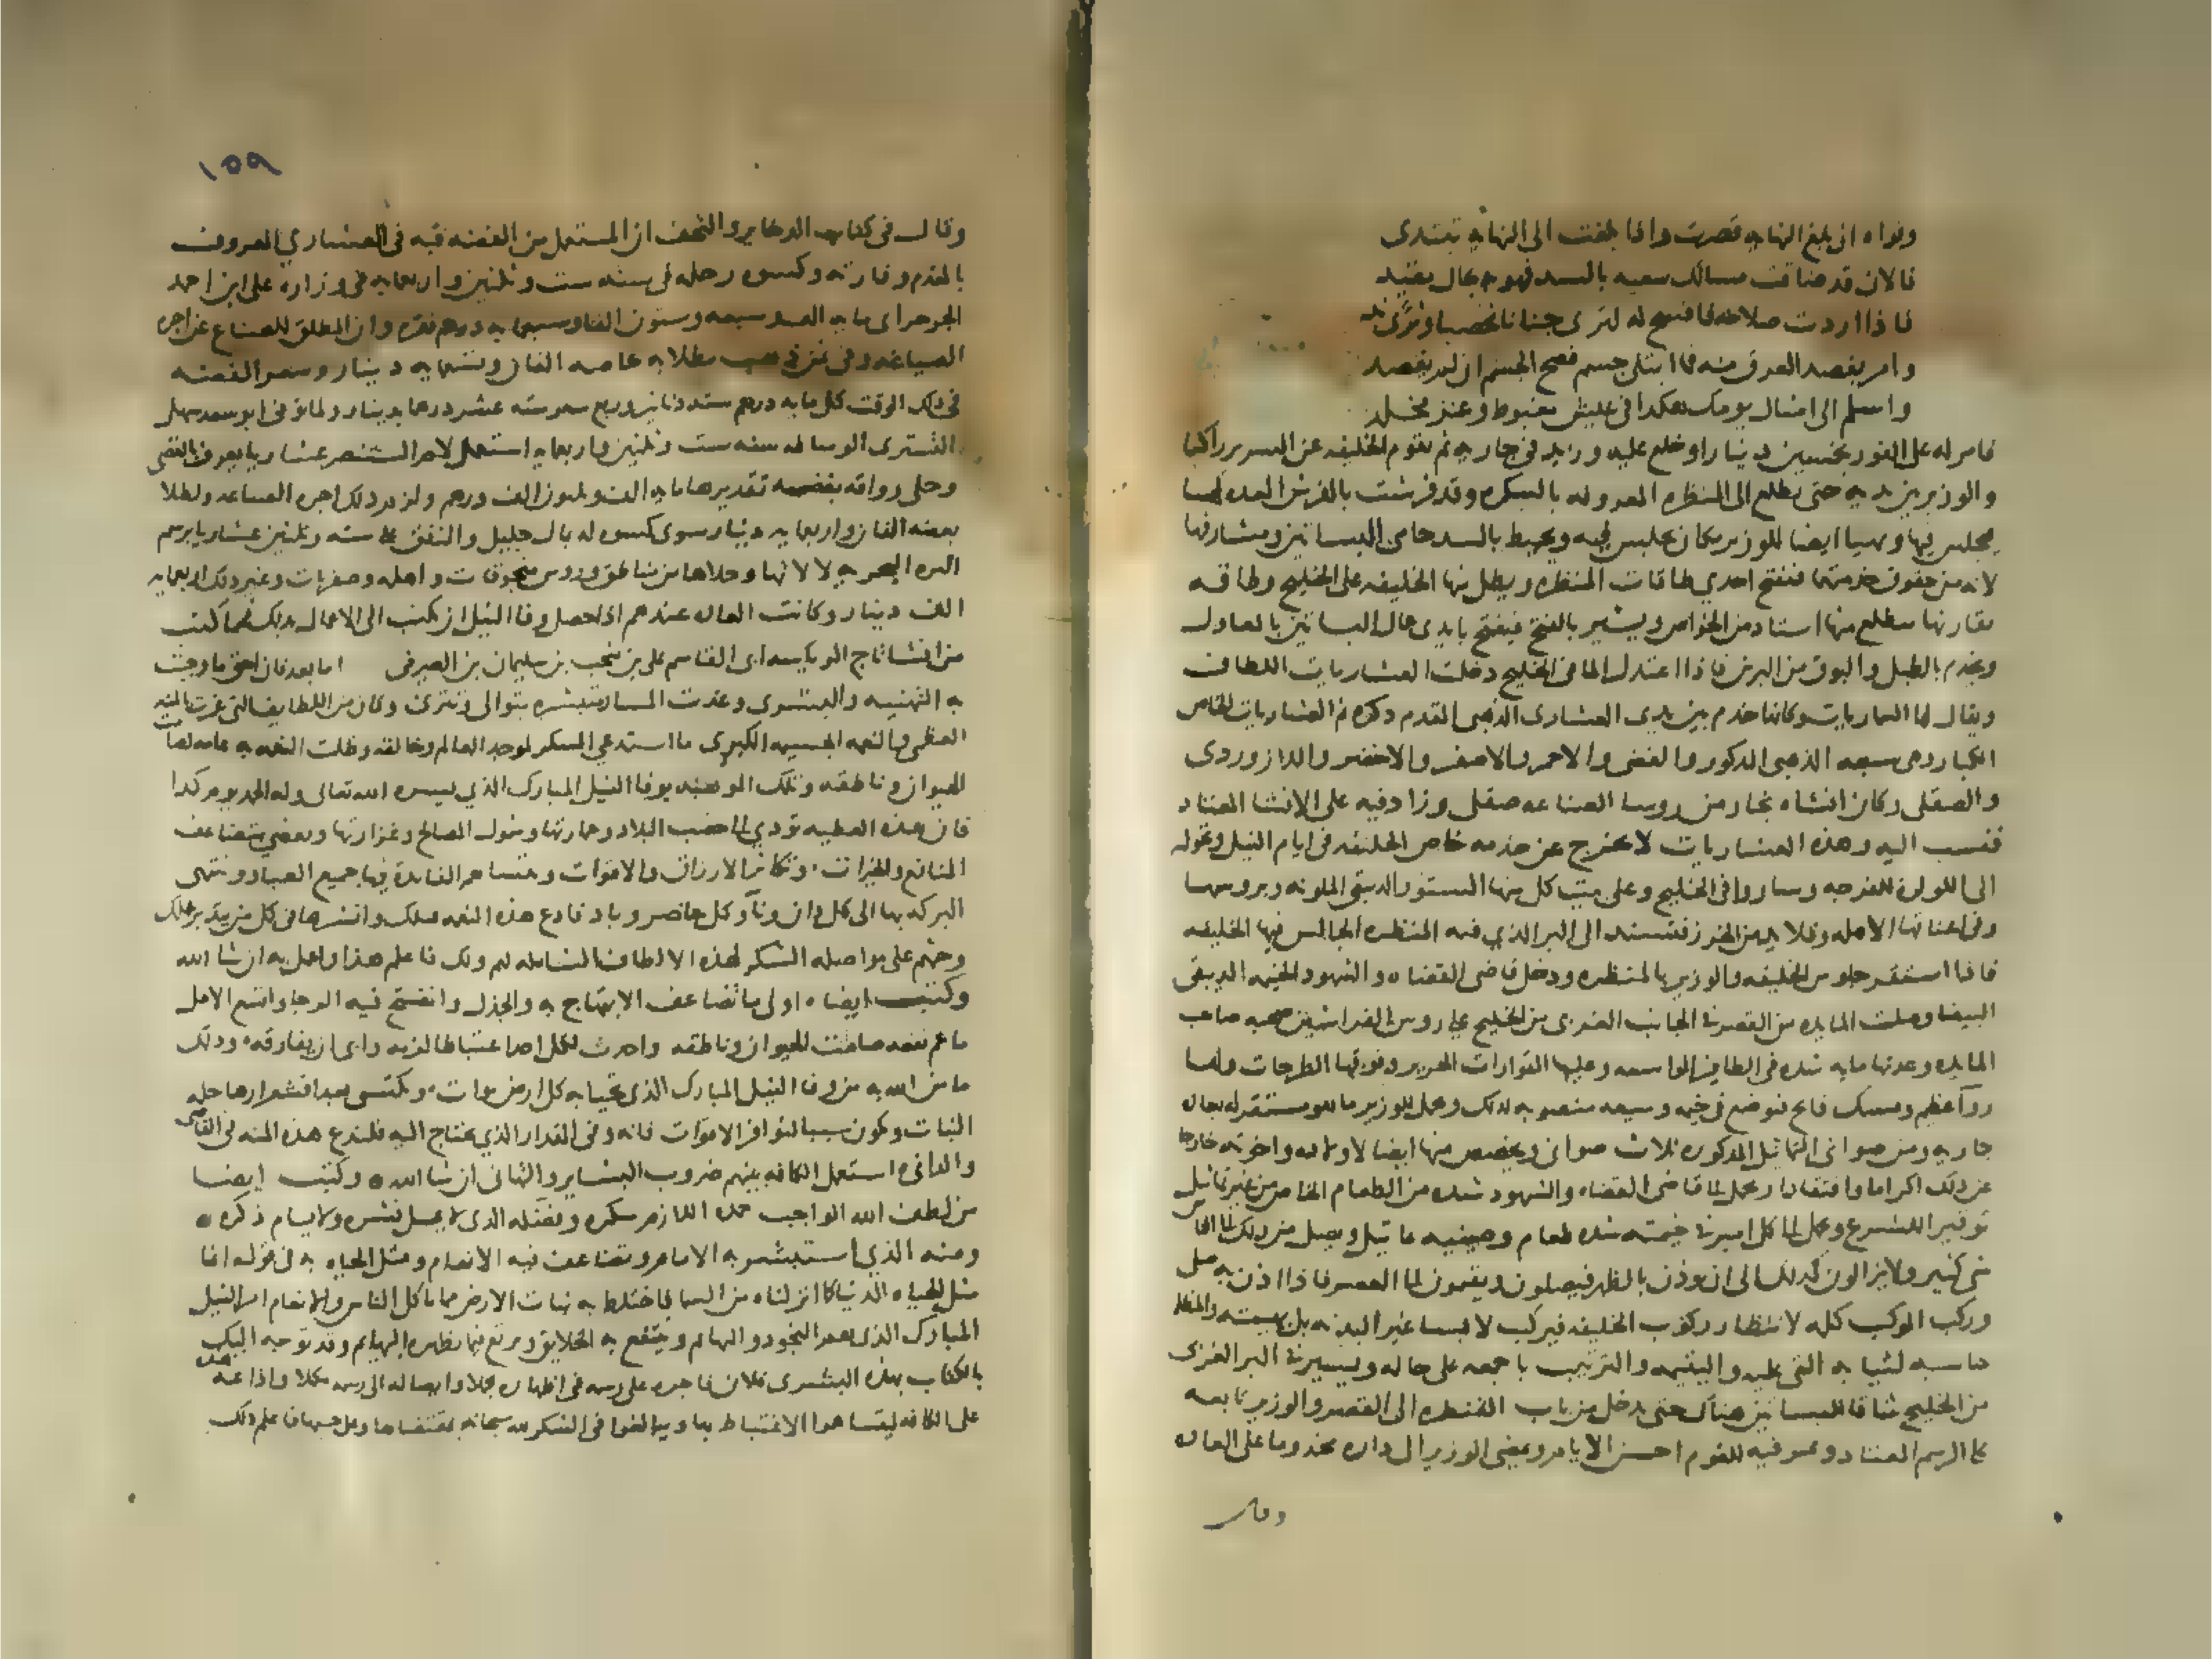 وقواه ان بلغ النهايه قصرت واذا بلغت الى النهايه تبتدى
فالان قد ضاقت مسالك سعيه بالسد فهو بحال مقيد
فاذا اردت صلاحه فافتح له لترى جنانا مخصبا وثرى ند
وامر بفصد العرق منه فما ابتلى جسم فصح الجسم ان لم يفصد
واسلم الى امثال يومك هكذا فى عيش مغبوط وعز مخلد
فامر له على الفور بخمسين دينارا وخلع عليه وزيد فى جاريه ثم يقوم الخليفه عن السرير راكبا
والوزير بين يديه حتى يطلع الى المنظره المعروفه بالسكره وقد فرشت بالفرش المعده لها
فيجلس فيها ويهيا ايضا للوزير مكان يجلس فيه ويحيط بالسد حامى البساتين ومشارفها
لانه من حقوق خدمتهما فتفتح احدي طاقات المنظره ويطل منها الخليفه على الخليج وطاقه
تقاربها يتطلع منها استاد من الخواص ويشير بالفتح فيفتح بايدى عمال البساتين بالمعاول
ويخدم بالطبل والبوق من البرين فاذا اعتدل الما فى الخليج دخلت العشاريات اللطاف
ويقال لها السماريات وكانها خدم بين يدى العشارى الذهبى المقدم ذكره ثم العشاريات الخاص
الكبار وهى سبعه الذهبى المذكور والفضى والاحمر والاصفر والاخضر واللازوردى
والصقلى وكان انشاه نجار من روسا الصناعه صقلى وزاد فيه على الانشا المعتاد
فنسب اليه وهذه العشاريات لا تخرج عن خدمه خاص الخليفه فى ايام النيل وتحوله
الى اللولوة للفرجه وساروا فى الخليج وعلى بيت كل منها الستور الدبيقى الملونه وبروسها
وفى اعناقها الاهله وقلايد من الخرز فتستند الى البر الذي فيه المنظره الجالس فيها الخليفه
فاذا استقر جلوس الخليفه والوزير بالمنظره ودخل قاضى القضاه والشهود الخيمه الدبيقى
البيضا وصلت المايده من القصر فى الجانب الغربى من الخليج على روس الفراشين صحبه صاحب
المايده وعدتها مايه شده فى الطيافير الواسعه وعليها القوارات الحرير وفوقها الطراحات ولها
روآ عظيم ومسك فايح فتوضع فى خيمه وسيعه منصوبه لذلك ويحمل للوزير ما هو مستقر له بعاده
جاريه ومن صوانى التماثيل المذكوره ثلاث صوانى ويخصص منها ايضا لاولاده واخوته خارجا
عن ذلك اكراما وافتقادا ويحمل الى قاضى القضاه والشهود شده من الطعام الخاص من غير تماثيل
توقيرا للشرع ويحمل الى كل امير فى خيمته شده طعام وصينيه تماثيل ويصل من ذلك الى الناس
شى كثير ولا يزالون كذلك الى ان يوذن بالظهر فيصلون ويقيمون الى العصر فاذا اذن به صلى
وركب الموكب كله لانتظار ركوب الخليفه فيركب لابسا غير البدنه بل بهيئته والمظله
مناسبه لثيابه التى عليه واليتيمه والترتيب باجمعه على حاله ويسير فى البر الغربى
من الخليج شاقا للبساتين هناك حتى يدخل من باب القنطره الى القصر والوزير تابعه
على الرسم المعتاد ويمر فيه للقوم احسن الايام ويمضى الوزير الى داره مخدوما على العاده
وقال
١٥٩
وقال فى كتاب الدخاير والتحف ان المستعمل من الفضه فيه فى العشاري المعروف
بالمقدم وقاربه وكسوه رحله فى سنه ست وثلثين واربعمايه فى وزاره على ابن احمد
الجرجراى مايه الف وسبعه وستون الفا وسبعمايه درهم نقره وان المطلق للصناع عن اجره
الصياغه وفى ثمن ذهب لطلايه خاصه الفان وتسعمايه دينار وسعر الفضه
فى ذلك الوقت كل مايه درهم سته دنانير وربع سعر سته عشر درهما بدينار ولما تولى ابو سعد سهل
التسترى الوساطه سنه ست وثلثين واربعمايه استعمل لام المستنصر عشاريا يعرف بالفضى
وحلى رواقه بفضه تقديرها مايه الف وثلثون الف درهم ولزم ذلك اجره الصناعه ولطلا
بعضه الفان واربعمايه دينار سوى كسوه له بمال جليل وانفق على سته وثلثين عشاريا برسم
النزه البحريه لالاتها وحلاها من مناطق وروس منجوقات واهله وصفريات وغير ذلك اربعمايه
الف دينار وكانت العاده عندهم اذا حصل وفا النيل ان يكتب الى الاعمال بذلك فمما كتب
من انشا تاج الرياسه ابى القاسم على بن منجب بن سليمان بن الصيرفى اما بعد فان احق ما وجبت
به التهنيه والبشرى وغدت المسار منتشره تتوالى وتترى وكان من اللطايف التى غمرت بالمنه
العظمى والنعمه الجسيمه الكبرى ما استدعى الشكر لموجد العالم وخالقه وظلت النعمه به عامه لصامت
الحيوان وناطقه وتلك الموهبه بوفا النيل المبارك الذي يسره الله تعالى وله الحمد يوم كذا
فان هذه العطيه تودي الى خصب البلاد وعمارتها وشمول المصالح وغزارتها وتفضي بتضاعف
المنافع والخيرات وتكاثر الارزاق والاقوات ويتساهم الفايدة فيها جميع العباد وتنتهى
البركه بها الى كل دان ونآء وكل حاضر وباد فاذع هذه النعمه قبلك وانشرها فى كل من يتدبر عملك
وحثهم على مواصله الشكر لهذه الالطاف الشامله لهم ولك فاعلم هذا واعمل به ان شا الله
وكتب ايضا ه اولى ما تضاعف الابتهاج به والجذل وانفسح فيه الرجا واتسع الامل
ما عم نفعه صامت الحيوان وناطقه واحدث لكل احد اغتباطا لزمه وابى ان يفارقه وذلك
ما من الله به من وفا النيل المبارك الذى تحيا به كل ارض موات ويكتسى بعد اقشعرارها حله
النبات ويكون سببا لتوافر الاقوات فانه وفى المقدار الذي يحتاج اليه فلتذع هذه المنه فى القاصى
والدانى ليستعمل الكافه بينهم ضروب البشاير والتهانى ان شا الله ه وكتب ايضا
من لطف الله الواجب حمده اللازم شكره وفضله الذى لا يمل نشره ولا يسام ذكره ه
ومنه الذي استبشر به الانام وتضاعف فيه الانعام ومثل الحياه به فى قوله انما
مثل الحياه الدنيا كما انزلناه من السما فاختلط به نبات الارض مما ياكل الناس والانعام امر النيل
المبارك الذى يعم النجود والتهائم وينتفع به الخلايق وترتع فيما يظهره البهايم وقد توجه اليك
بالكتاب بهذه البشرى فلان فاجره على رسمه فى اظهاره مجملا وايصاله الى رسمه مكملا واذاعه هذه
على الكافه ليتساهموا الاغتباط بها ويبالغوا فى الشكر لله سبحانه بمقتضاها وعلى حسبها فاعلم ذلك